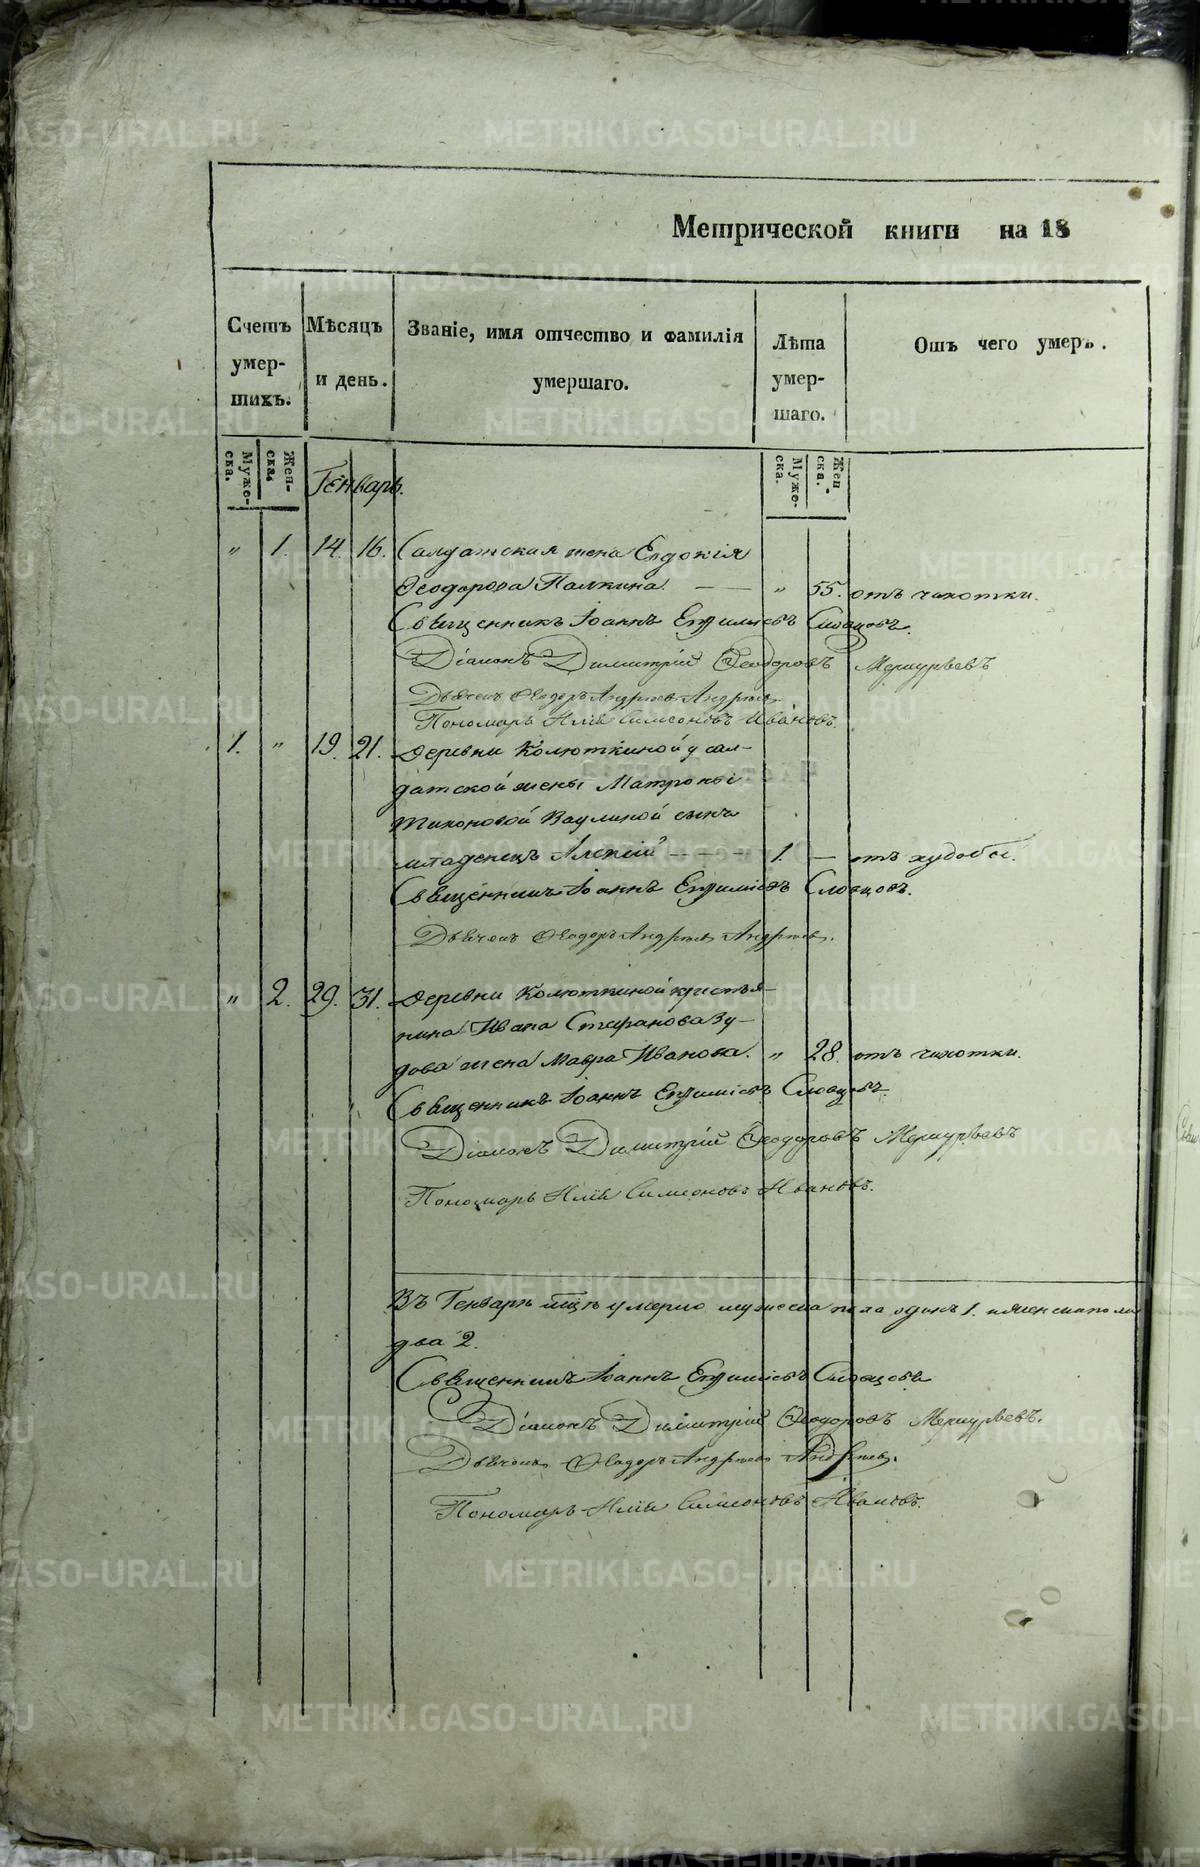 Метрической книги на 18
Счетъ умер- шихъ.
Мѣсяцъ и день.
Званіе, имя отчество и фамилія умершаго.
Лѣта умер- шаго.
Отъ чего умеръ.
Муже- ска.
Жен- ска.
Муже- ска.
Жен ска.
Генварь.
„ 1. 14. 16. Салдатская жена Евдокія
Ѳеодорова Палкина. — „ 55. отъ чахотки.
Священникъ Іоаннъ Евѳиміевъ Словцовъ.
Діаконъ Димитрій Ѳеодоровъ Меркурьевъ
Дьячекъ Ѳеодоръ Андреевъ Андреевъ
Пономарь Илія Симеоновъ Ивановъ.
1. „ 19. 21. Деревни Колюткиной у сал-
датской жены Матроны
Тихоновой Ваулиной сынъ
младенецъ Алексій - - - - 1. — отъ худобы.
Священникъ Іоаннъ Евѳиміевъ Словцовъ.
Дьячекъ Ѳеодоръ Андреевъ Андреевъ.
„ 2. 29. 31. Деревни Колюткиной крестья-
нина Ивана Стефанова Зу-
дова жена Мавра Иванова. „ 28. отъ чахотки.
Священникъ Іоаннъ Евѳиміевъ Словцовъ.
Діаконъ Димитрій Ѳеодоровъ Меркурьевъ
Пономарь Илія Симеоновъ Ивановъ.
Въ Генварѣ м̃цѣ умерло мужеска пола одинъ 1. и женска пола
два 2.
Священникъ Іоаннъ Евѳиміевъ Словцовъ
Діаконъ Димитрій Ѳеодоровъ Меркурьевъ.
Дьячекъ Ѳеодоръ Андреевъ Андреевъ.
Пономарь Илія Симеоновъ Ивановъ.
METRIKI.GASO-URAL.RU